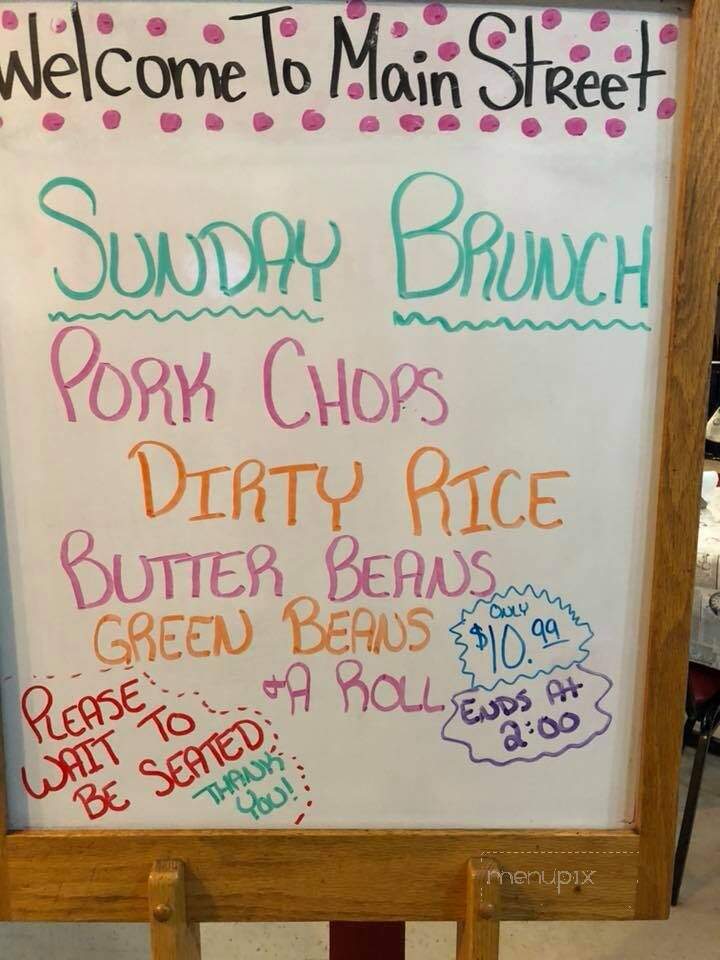 Welcome To Main Street
SUNDAY BRUNCH
PORK CHOPS
DIRTY RICE
BUTTER BEANS
GREEN BEANS
& A ROLL
ONLY
$10.99
ENDS At
2:00
PLEASE
WAIT TO
BE SEATED
THANK
YOU!
menupix